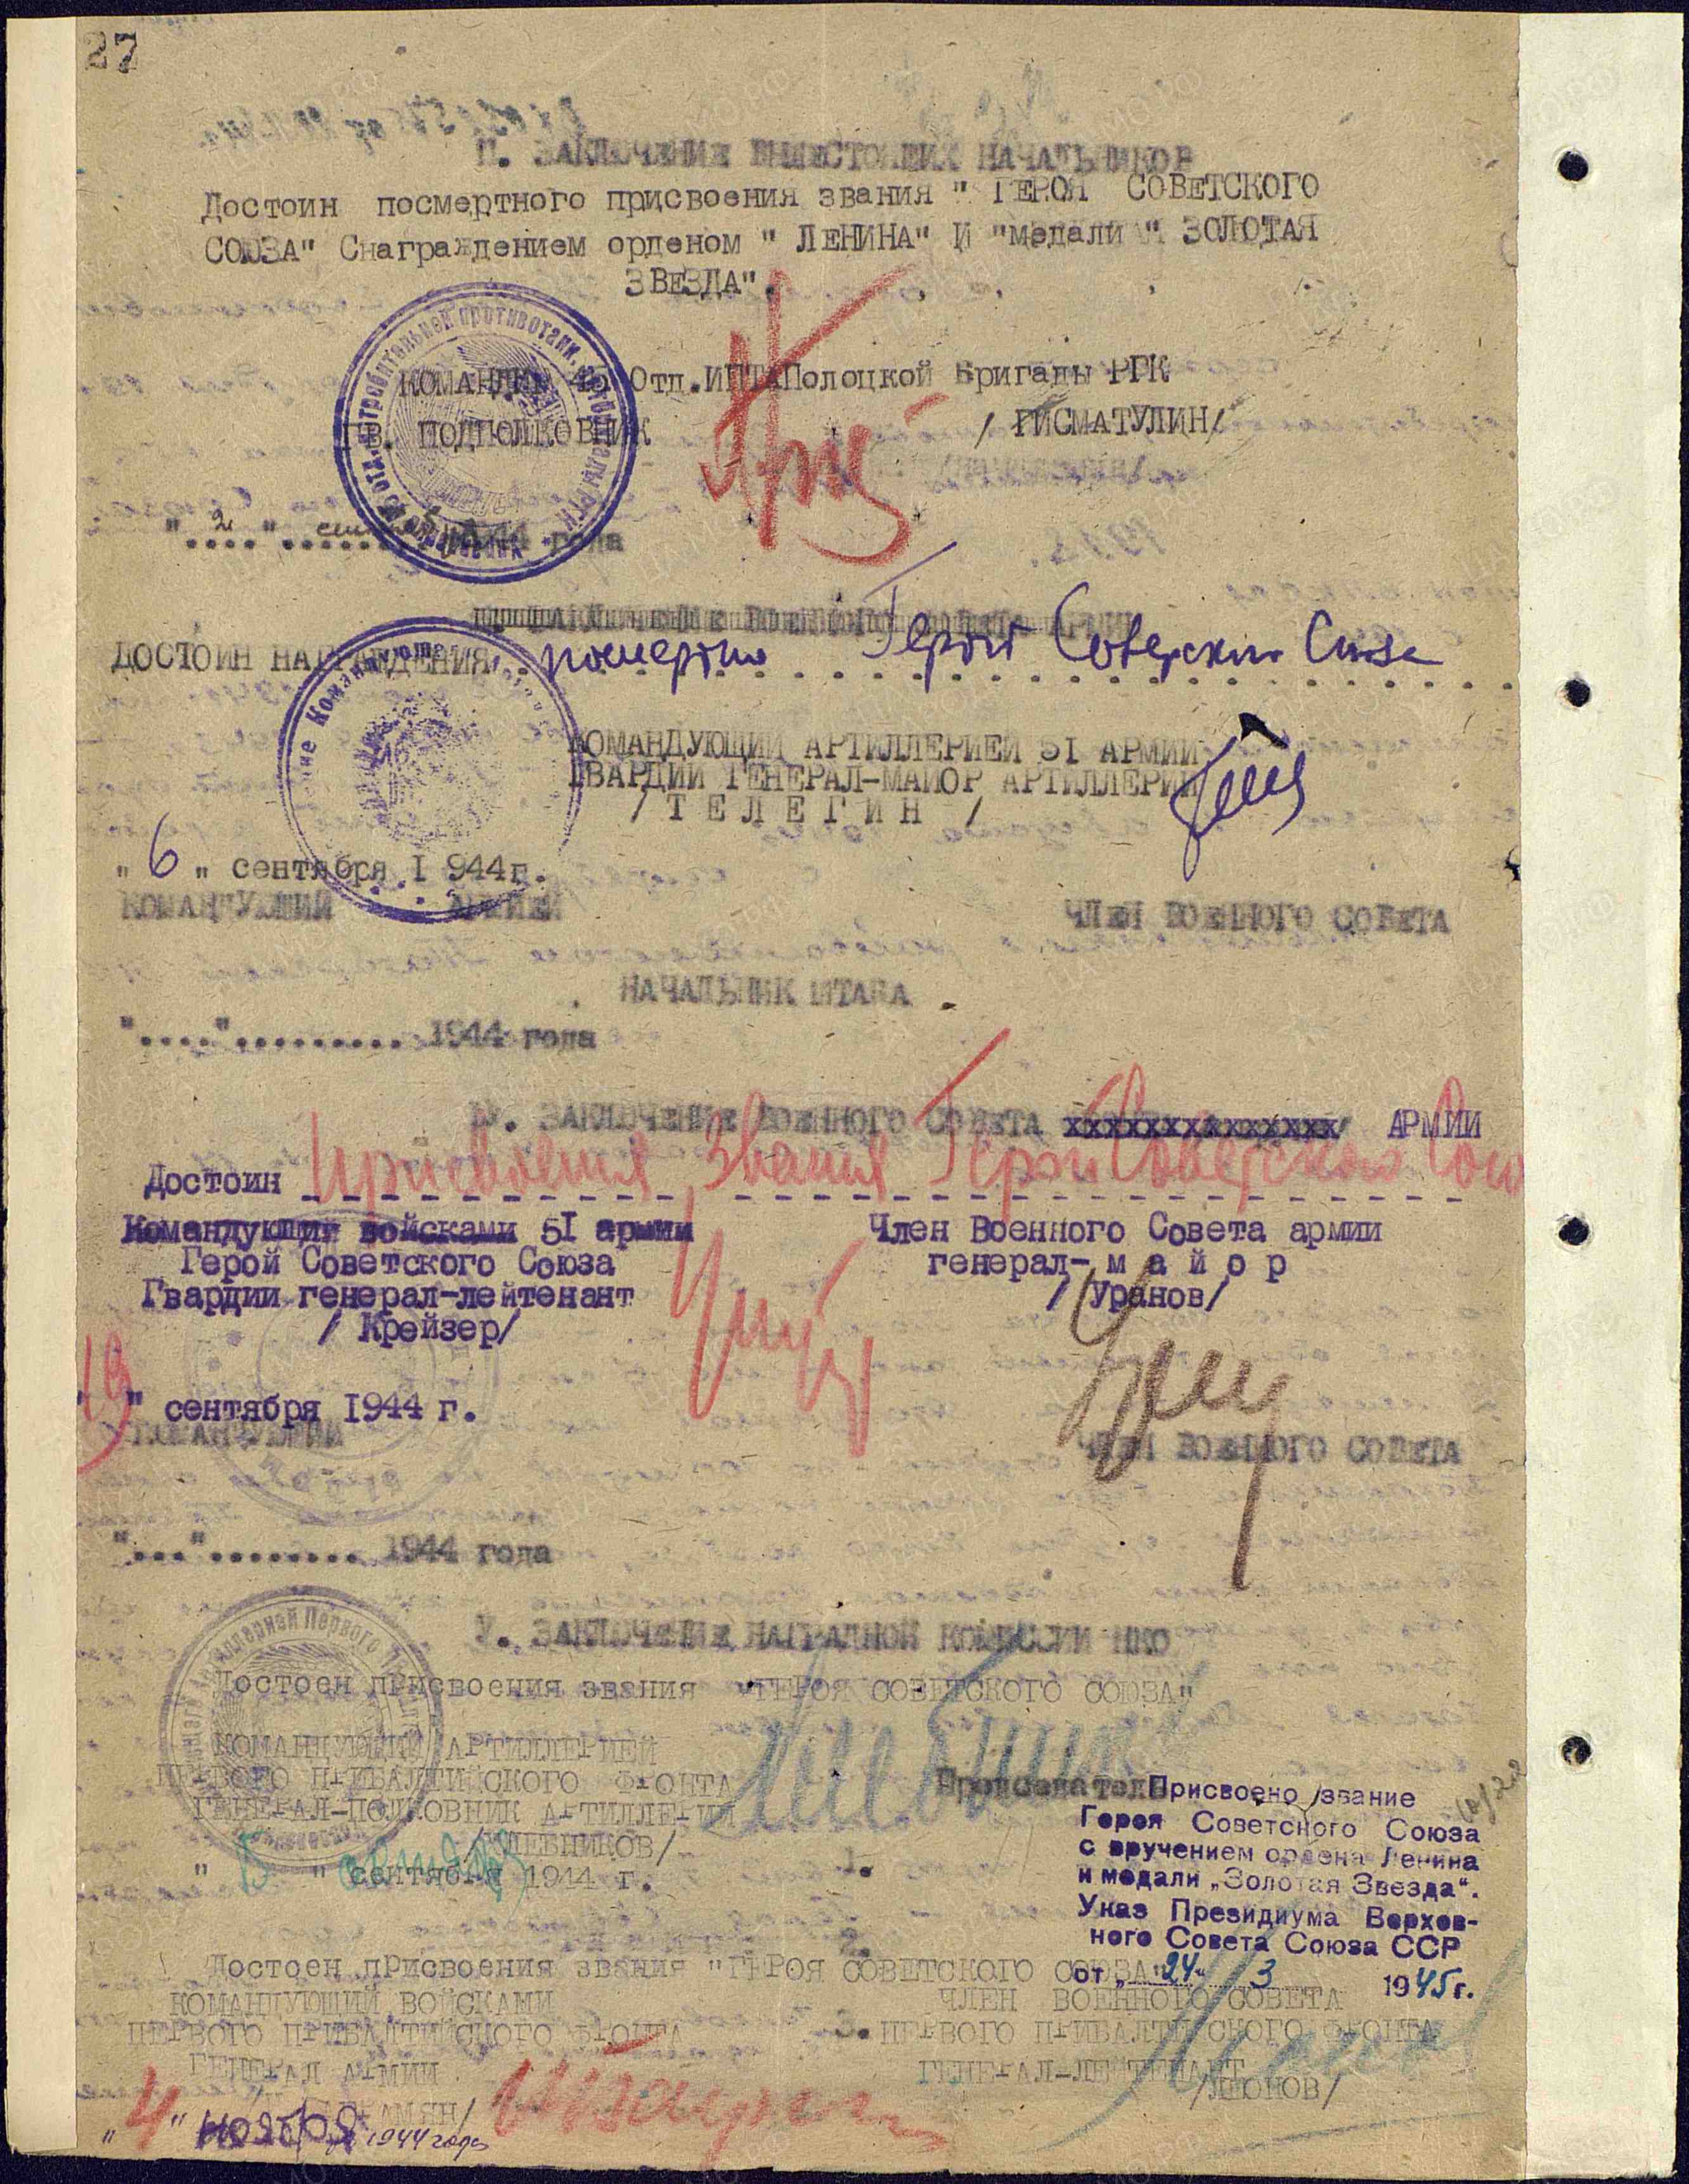 27
П. ЗАКЛЮЧЕНИЕ ВЫШЕСТОЯЩИХ НАЧАЛЬНИКОВ
Достоин посмертного присвоения звания " ГЕРОЯ СОВЕТСКОГО
СОЮЗА" Снаграждением орденом " ЛЕНИНА" И "медали " ЗОЛОТАЯ
ЗВЕЗДА".
КОМАНДИР Отд.ИПТАПолоцкой Бригады РГК
ГВ. ПОДПОЛКОВНИК / ГИСМАТУЛИН/
"2" 1944 года
ДОСТОИН НАГРАЖДЕНИЯ посмертно Герой Советского Союза
КОМАНДУЮЩИЙ АРТИЛЛЕРИЕЙ 51 АРМИИ
ГВАРДИИ ГЕНЕРАЛ-МАЙОР АРТИЛЛЕРИИ
/ Т Е Л Е Г И Н /
"6" сентября I 944г.
КОМАНДУЮЩИЙ АРМИЕЙ ЧЛЕН ВОЕННОГО СОВЕТА
НАЧАЛЬНИК ШТАБА
"...."......... 1944 года
ЗАКЛЮЧЕНИЕ ВОЕННОГО СОВЕТА ххххххххххххххх АРМИИ
Достоин присвоения звания Героя Советского Союз
Командующий войсками 5I армии Член Военного Совета армии
Герой Советского Союза генерал- м а й о р
Гвардии генерал-лейтенант / Уранов/
/ Крейзер/
19" сентября I944 г.
КОМАНДУЮЩИЙ ЧЛЕН ВОЕННОГО СОВЕТА
"..."........ 1944 года
У. ЗАКЛЮЧЕНИЕ НАГРАДНОЙ КОМИССИИ НКО
Достоен присвоения звания "ГЕРОЯ СОВЕТСКОГО СОЮЗА"
КОМАНДУЮЩИЙ АРТИЛЛЕРИЕЙ
ПЕРВОГО ПРИБАЛТИЙСКОГО ФРОНТА
ГЕНЕРАЛ-ПОЛКОВНИК АРТИЛЛЕРИИ
/ХЛЕБНИКОВ/
" " сентября 1944 г.
Председатель
Присвоено звание
Героя Советского Союза
с вручением ордена Ленина
и медали „Золотая Звезда“.
Указ Президиума Верхов-
ного Совета Союза ССР
от „24“ 3 1945 г.
Достоен присвоения звания "ГЕРОЯ СОВЕТСКОГО СОЮЗА"
КОМАНДУЮЩИЙ ВОЙСКАМИ ЧЛЕН ВОЕННОГО СОВЕТА
ПЕРВОГО ПРИБАЛТИЙСКОГО ФРОНТА ПЕРВОГО ПРИБАЛТИЙСКОГО ФРОНТА
ГЕНЕРАЛ АРМИИ ГЕНЕРАЛ-ЛЕЙТЕНАНТ
/БАГРАМЯН/ /ЛЕОНОВ/
"4" ноября 1944 года